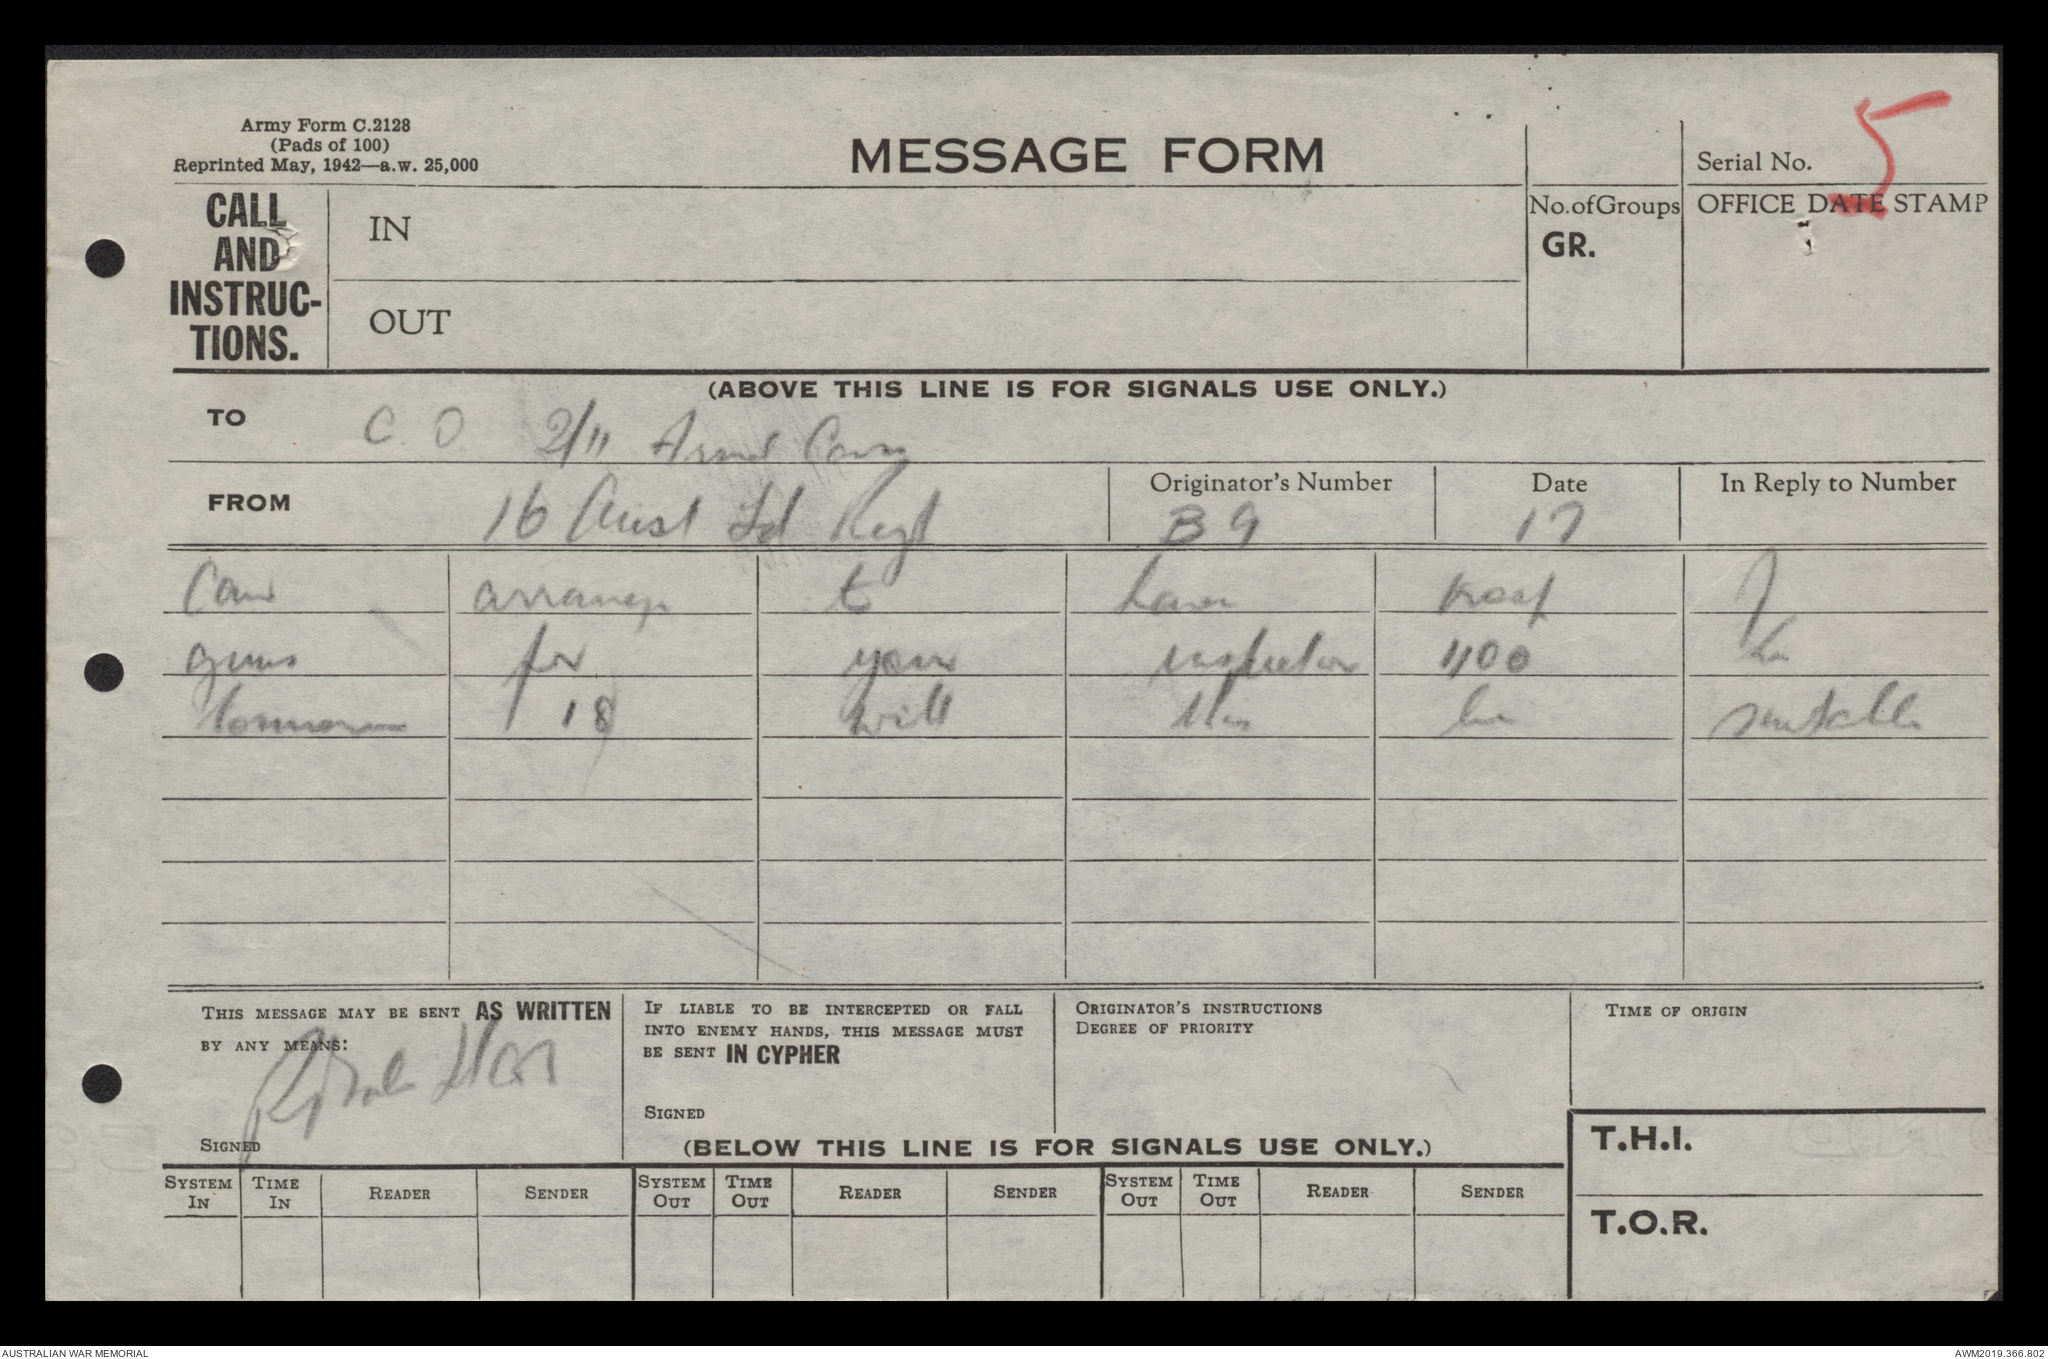 Army Form C.2128
(Pads of 100)
Reprinted May, 1942—a.w. 25,000
MESSAGE FORM
Serial No. 5
CALL AND INSTRUC-TIONS.
IN
OUT
No. of Groups
GR.
OFFICE DATE STAMP
(ABOVE THIS LINE IS FOR SIGNALS USE ONLY.)
TO C. O. 2/11 Armd
FROM 16 Aust Fd Regt
Originator's Number B 9
Date 17
In Reply to Number
Can arrange to have
guns for your inspection 1100 hr
18 will this be suitable
THIS MESSAGE MAY BE SENT AS WRITTEN BY ANY MEANS:
SIGNED
IF LIABLE TO BE INTERCEPTED OR FALL INTO ENEMY HANDS, THIS MESSAGE MUST BE SENT IN CYPHER
SIGNED
ORIGINATOR'S INSTRUCTIONS
DEGREE OF PRIORITY
TIME OF ORIGIN
(BELOW THIS LINE IS FOR SIGNALS USE ONLY.)
T.H.I.
T.O.R.
SYSTEM IN TIME IN READER SENDER SYSTEM OUT TIME OUT READER SENDER SYSTEM OUT TIME OUT READER SENDER
AUSTRALIAN WAR MEMORIAL
AWM2019.366.802